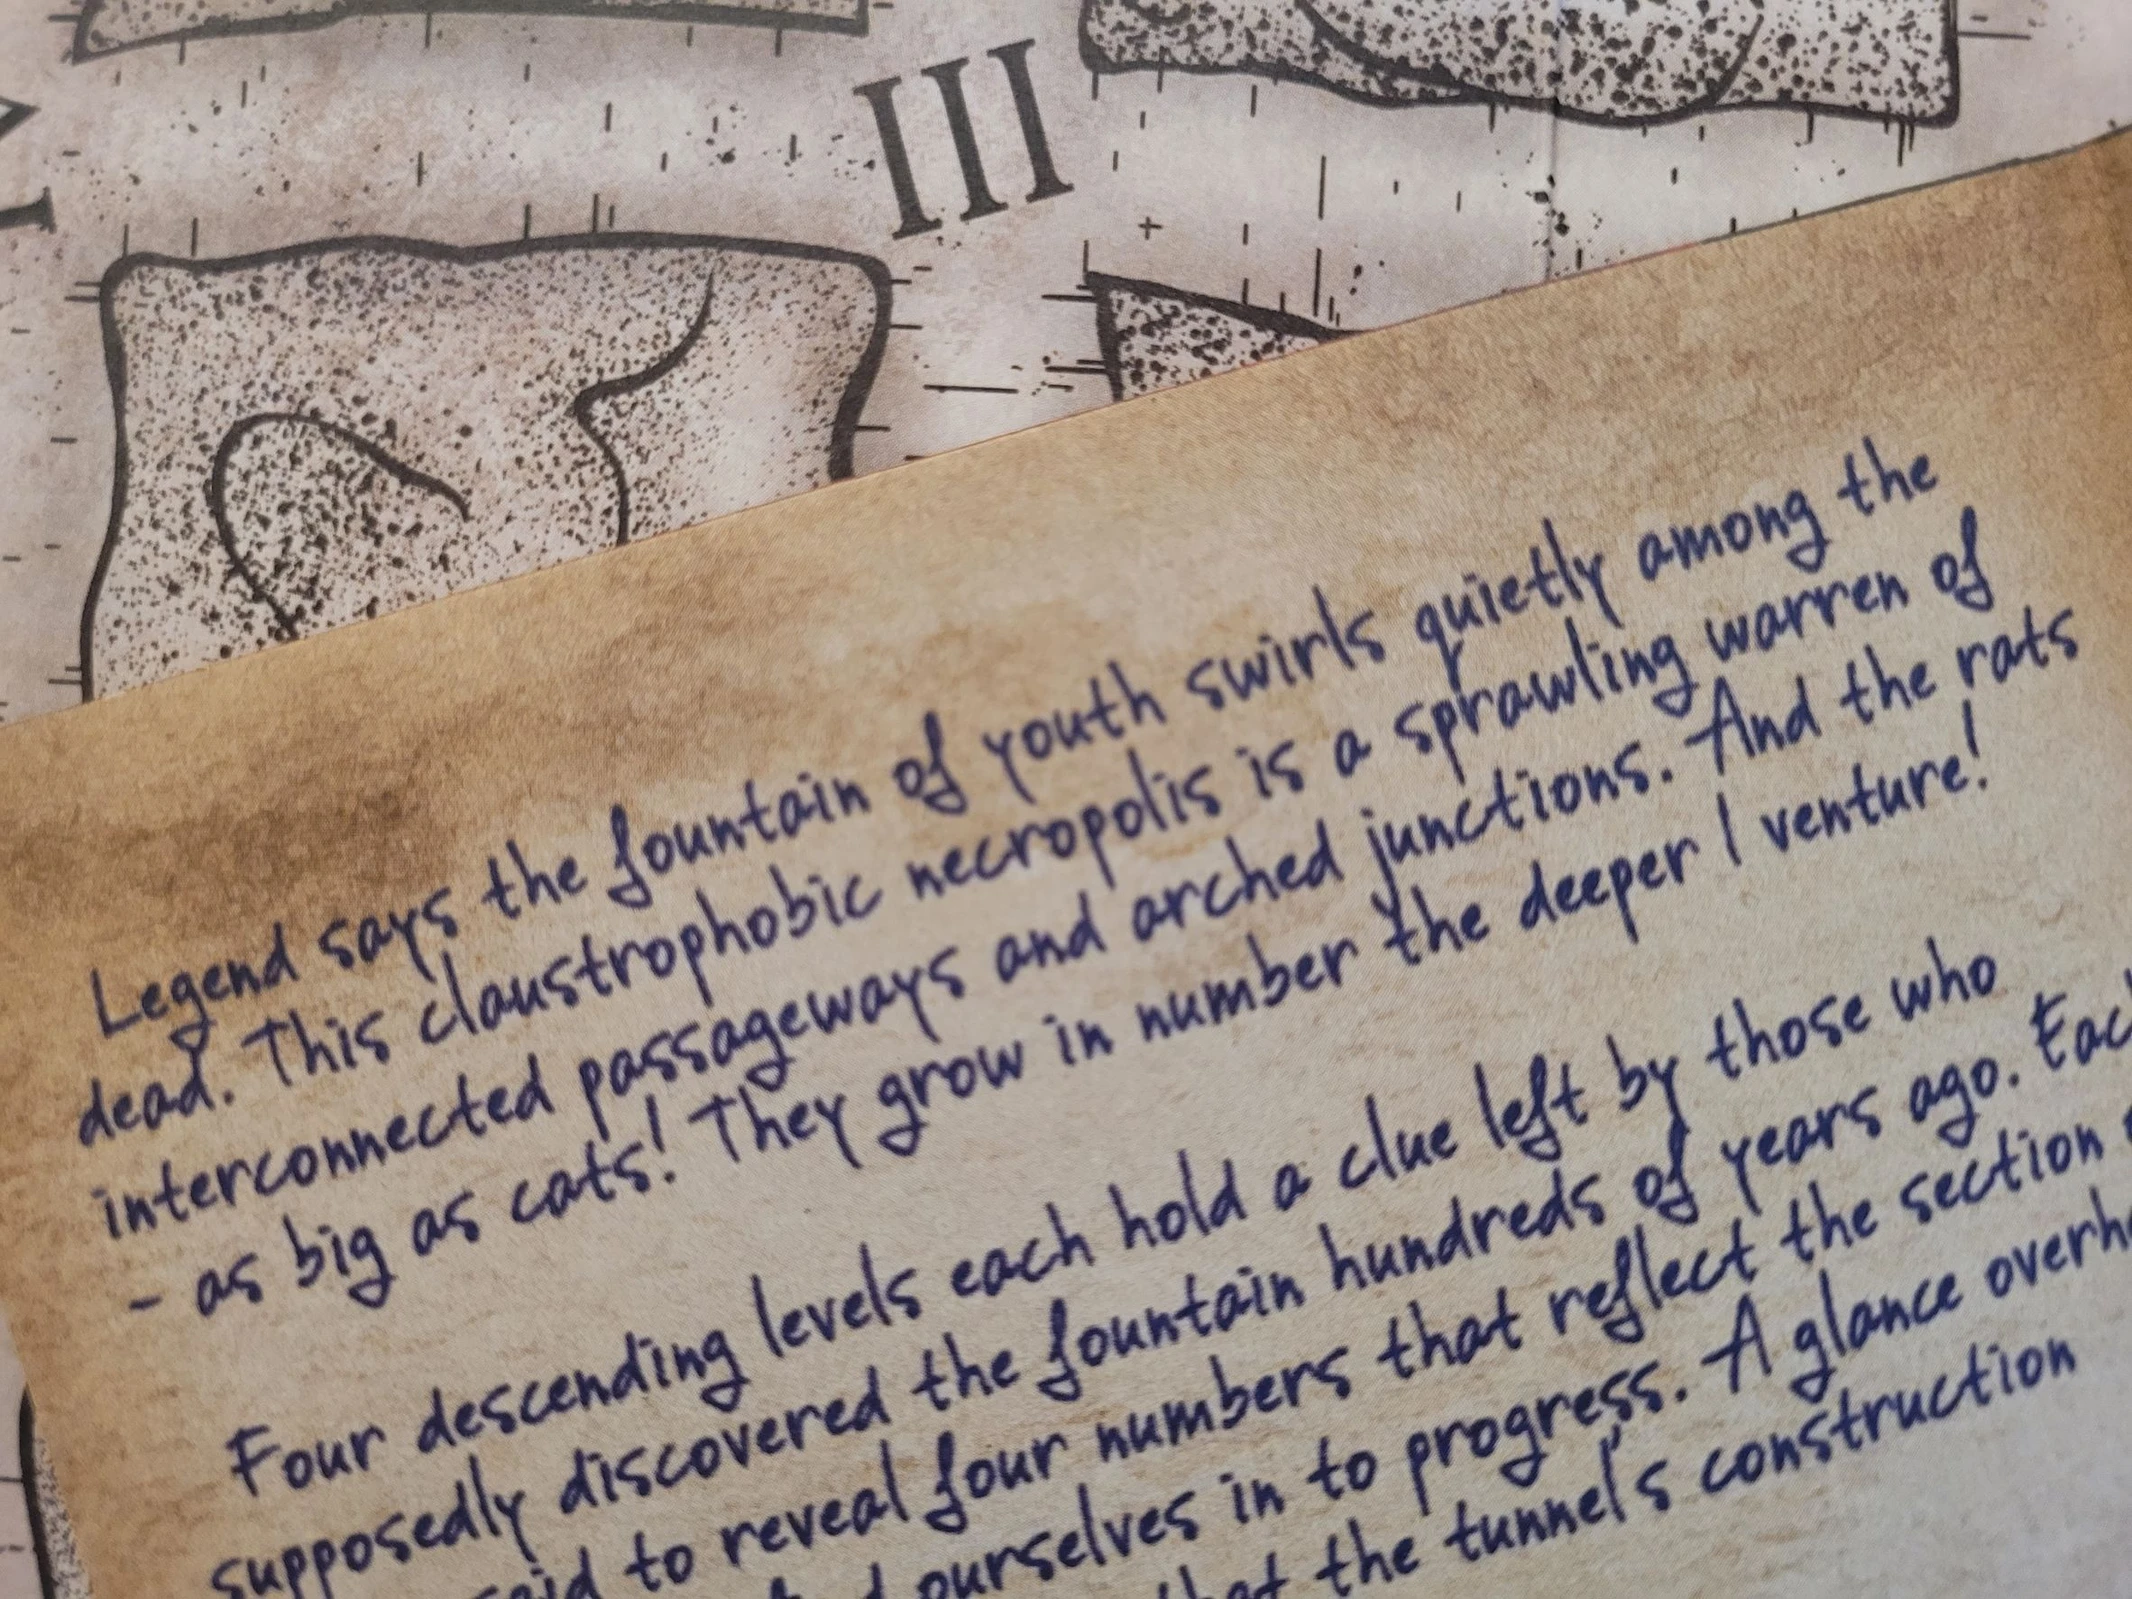 III
Legend says the fountain of youth swirls quietly among the
dead. This claustrophobic necropolis is a sprawling warren of
interconnected passageways and arched junctions. And the rats
- as big as cats! They grow in number the deeper I venture!
Four descending levels each hold a clue left by those who
supposedly discovered the fountain hundreds of years ago. Each
said to reveal four numbers that reflect the section
ourselves in to progress. A glance
that the tunnel's construction